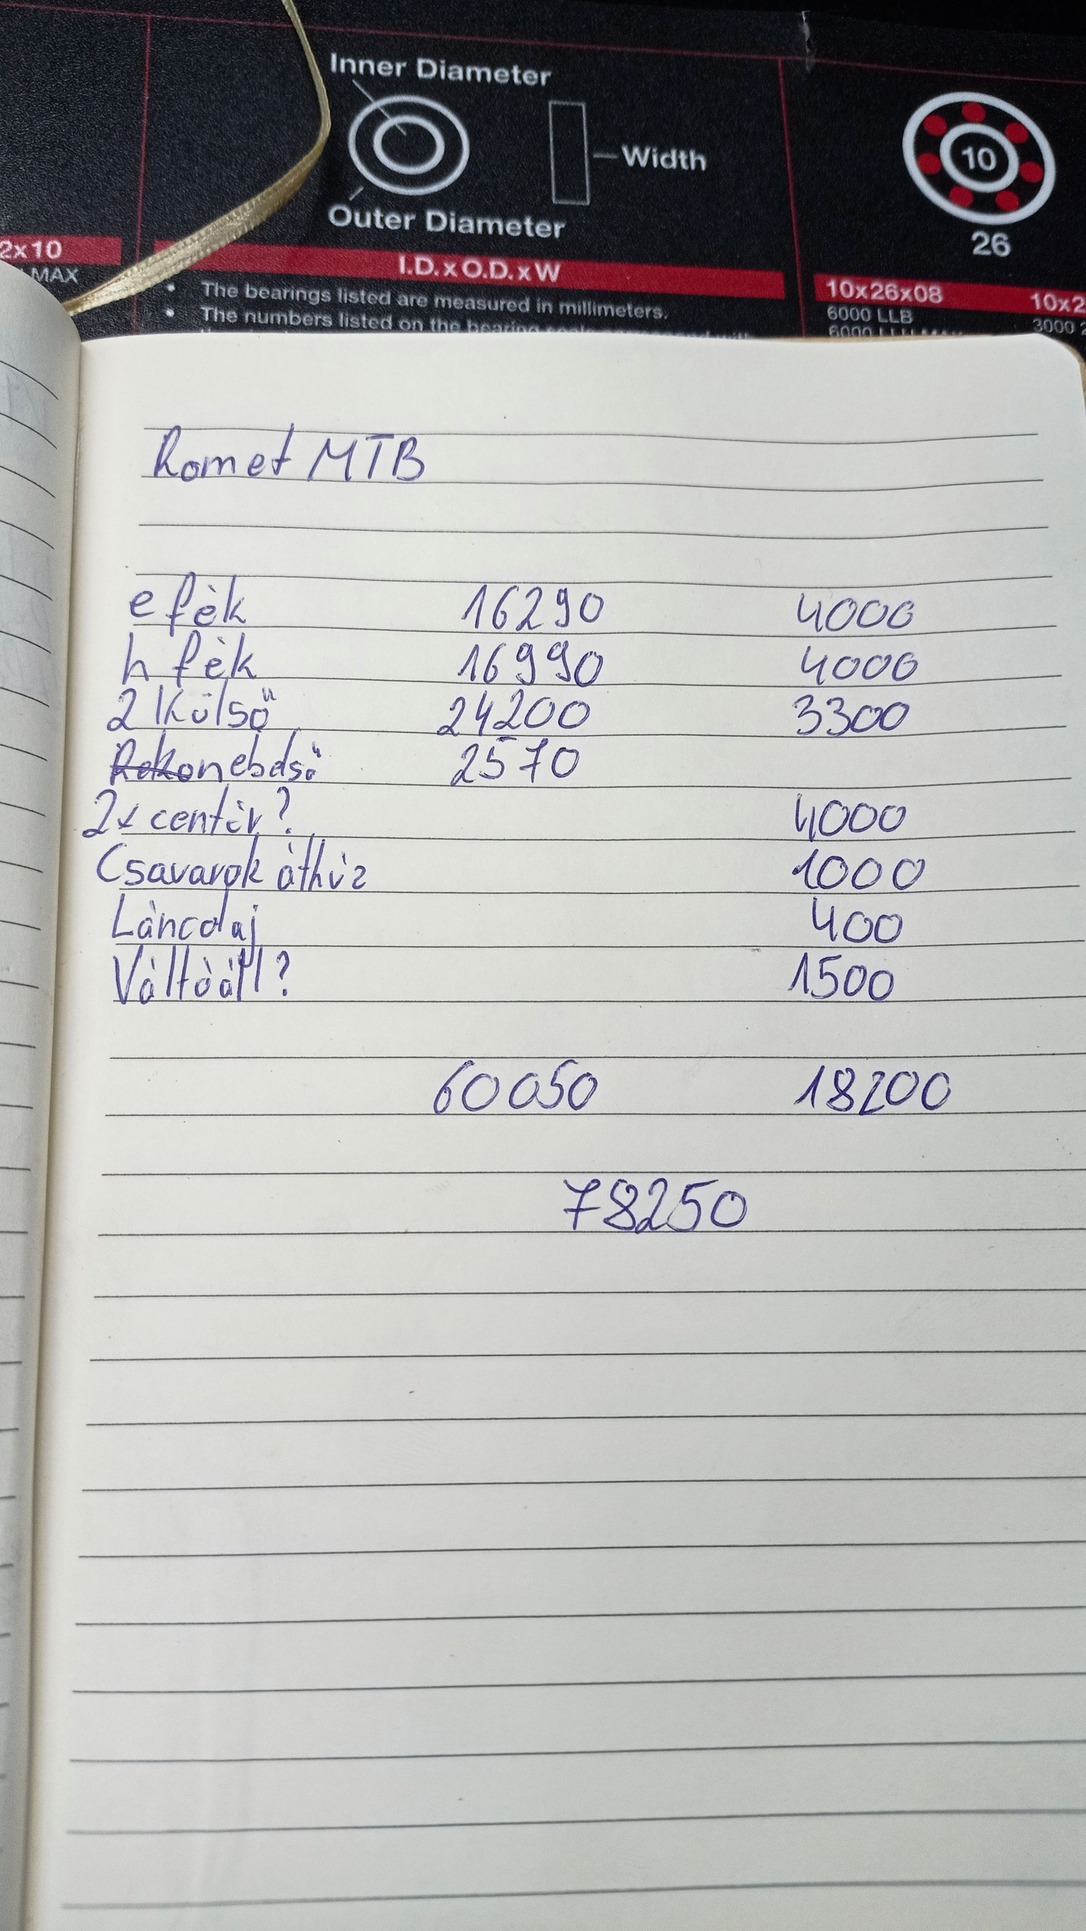 Inner Diameter
Width
Outer Diameter
10
26
2x10
MAX
I.D. x O.D. x W
• The bearings listed are measured in millimeters.
• The numbers listed on the bearing
10x26x08
6000 LLB
10x2
3000 2
Romet MTB
e fék 16290 4000
h fék 16990 4000
2 Külső 24200 3300
nebelső 2570
2x centír? 4000
Csavarok áthúz 1000
Láncolaj 400
Váltóáll? 1500
60050 18200
78250